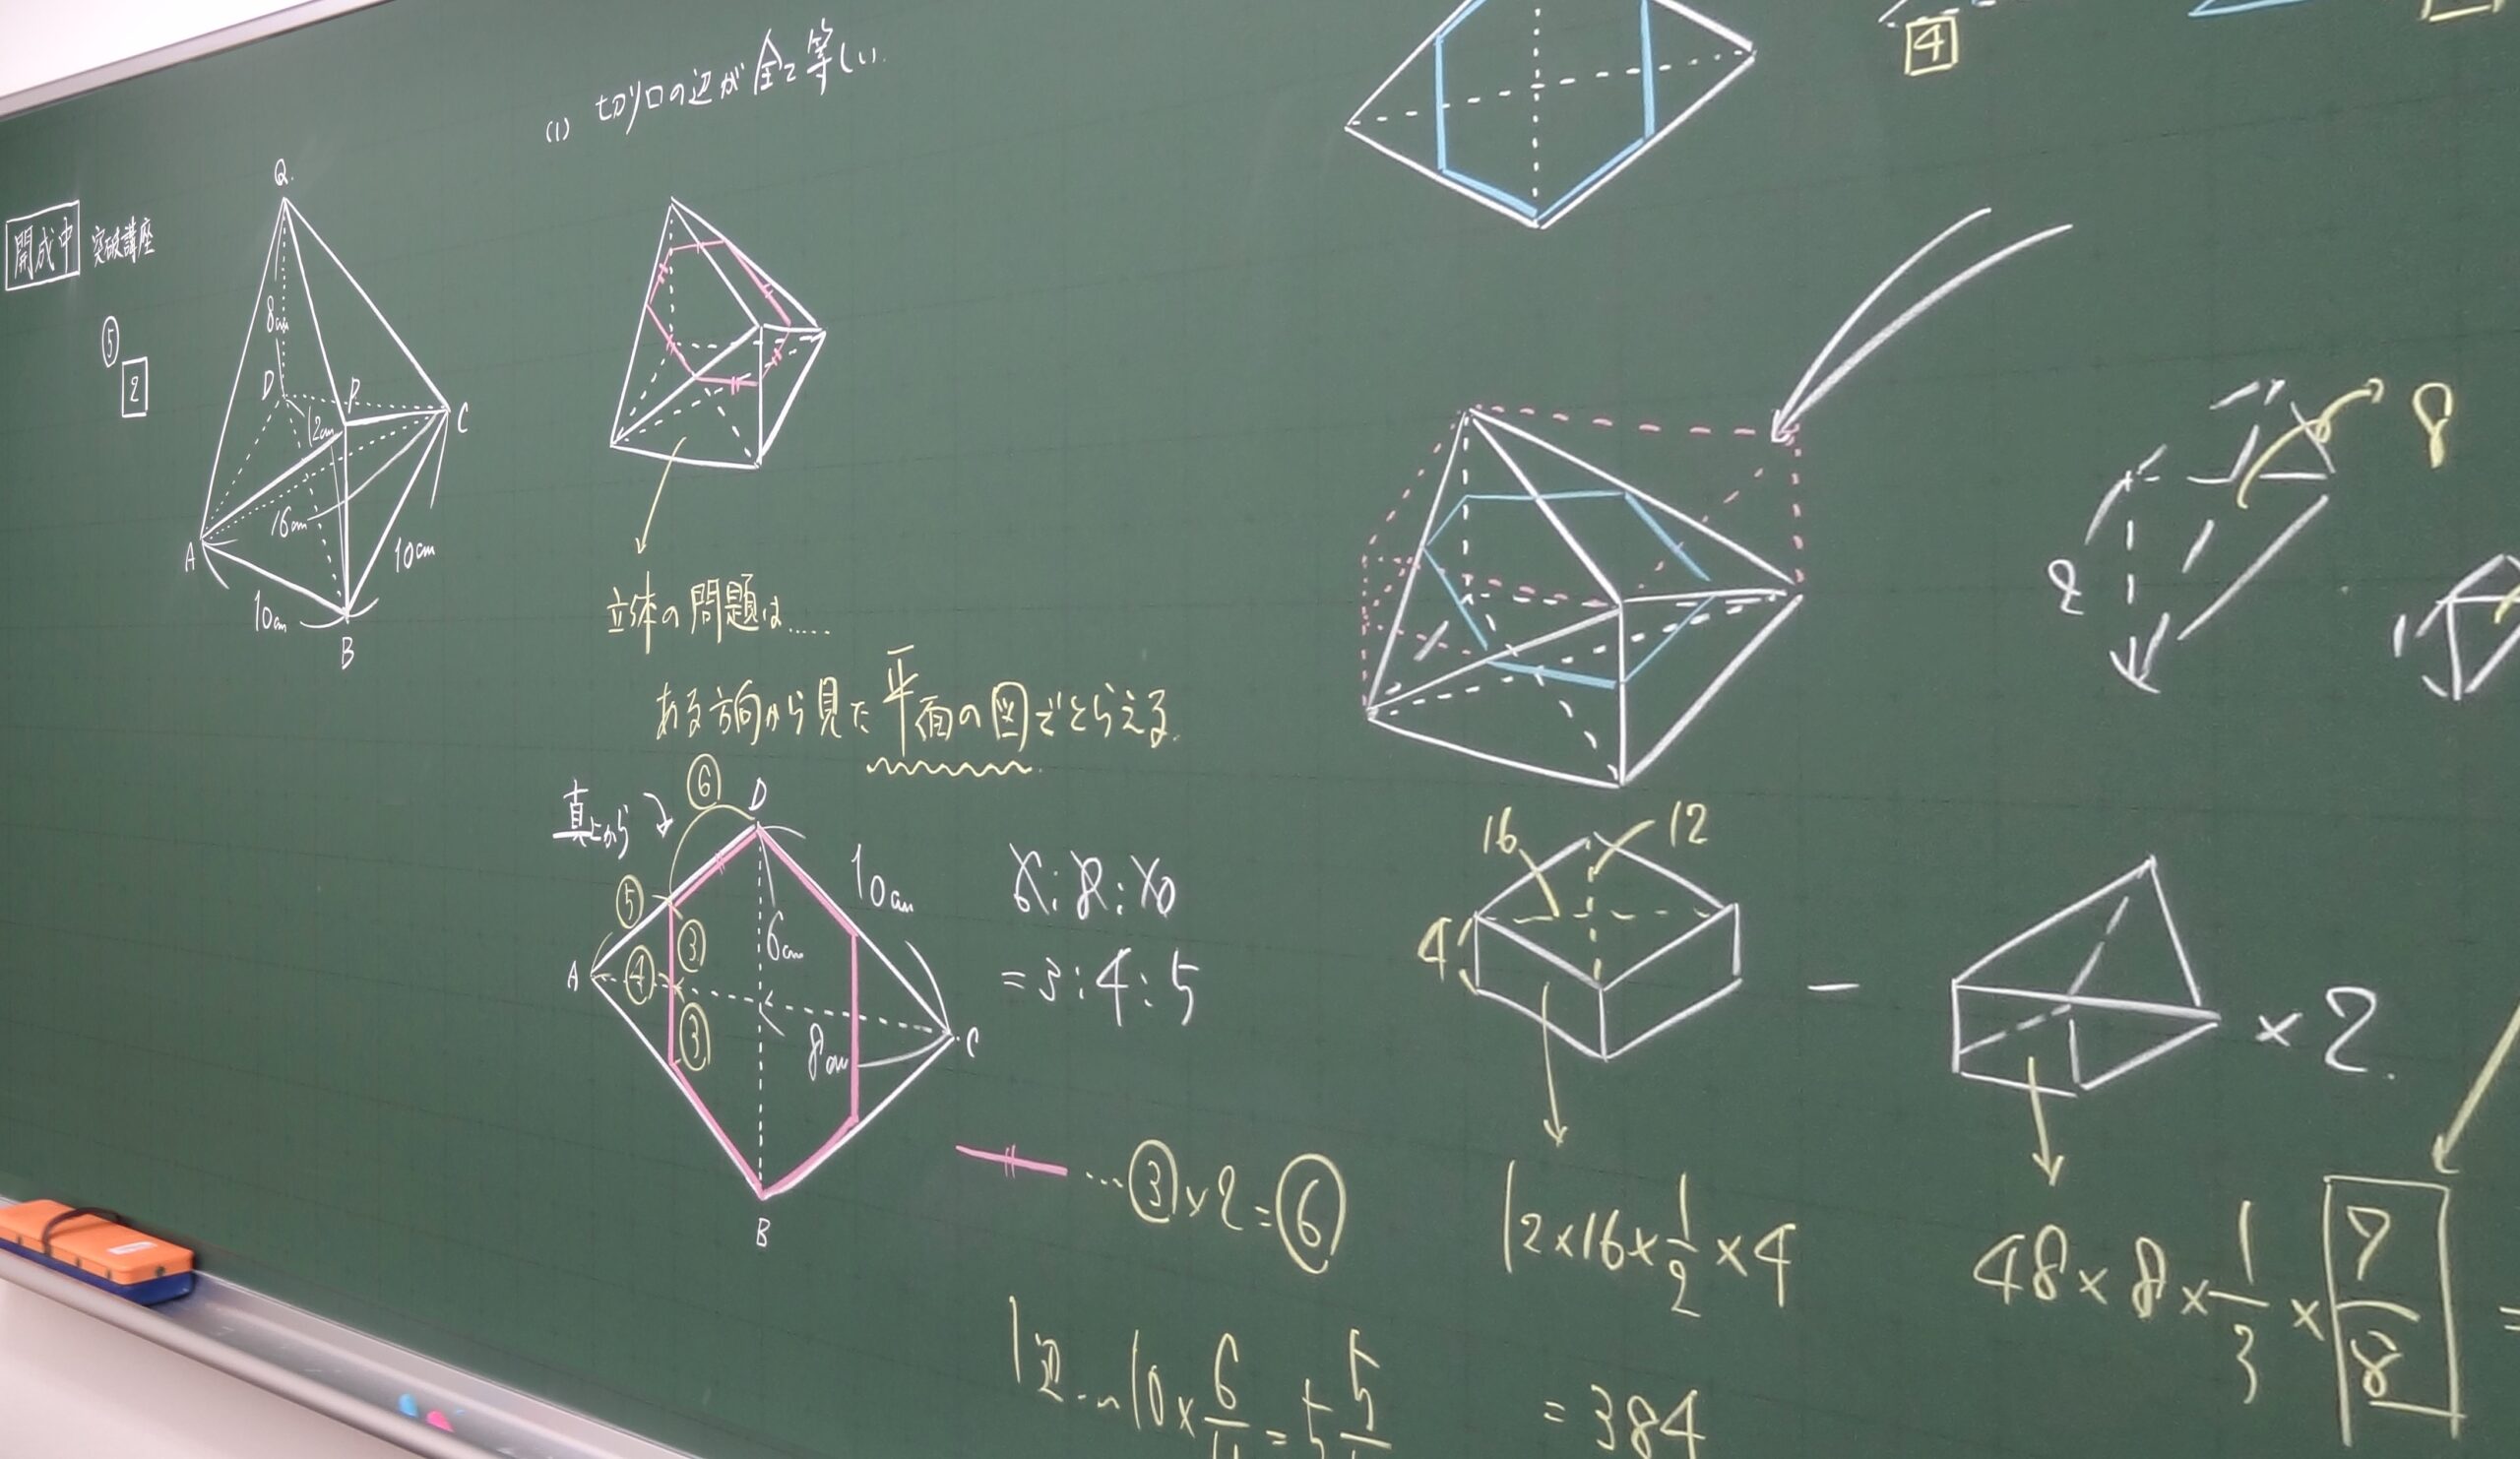 (1) 切り口の辺が全て等しい.
開成中 突破講座
⑤
2
Q
8cm
D
P
C
12cm
16cm
A
10cm
10cm
B
立体の問題は……
ある方向から見た平面の図でとらえる.
真上から
⑥
D
⑤
10cm
③
6cm
A
④
③
8cm
C
B
6:8:10
=3:4:5
…③×2=⑥
4
8
2
1
16
12
4
×2.
12×16×1/2×4
=384
48×8×1/3×7/8